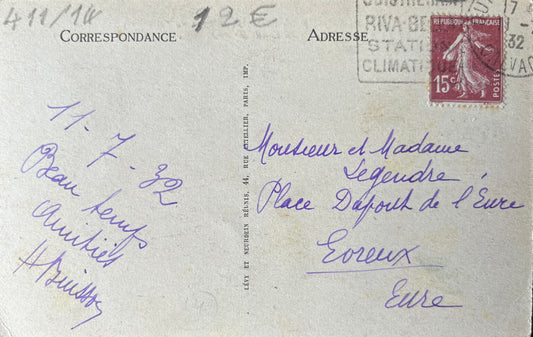 411/14
12€
CORRESPONDANCE
ADRESSE
OUISTREHAM
RIVA-BE
STATIO
CLIMATI
17
32
REPUBLIQUE FRANÇAISE
15c
POSTES
LÉVY ET NEURDEIN RÉUNIS, 44, RUE LETELLIER, PARIS, IMP.
11-7-32
Beau temps
Amitiés
HBuisson
Monsieur et Madame
Legendre
Place Dupont de l'Eure
Evreux
Eure